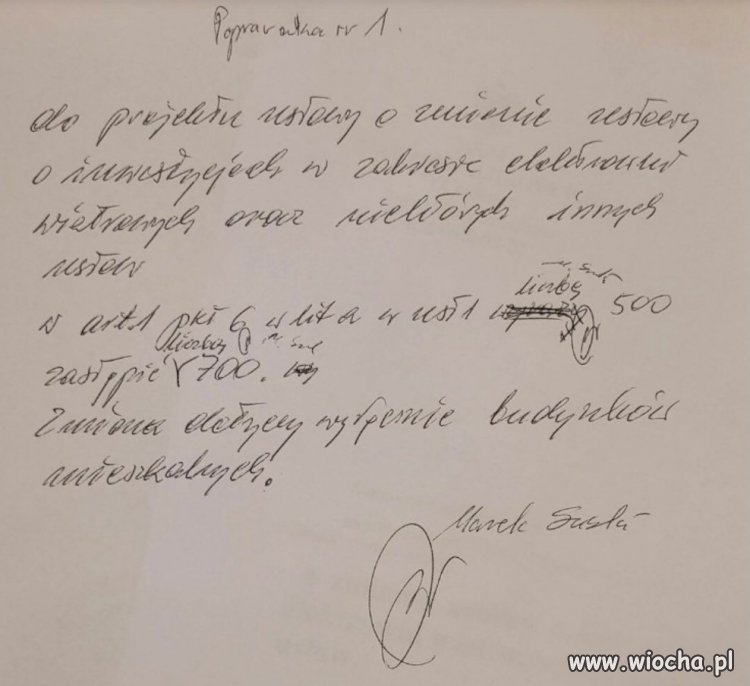 Poprawka nr 1.
do projektu ustawy o zmianie ustawy
o inwestycjach w zakresie elektrowni
wiatrowych oraz niektórych innych
ustaw
liczbę
w art. 1 pkt 6 w lit a w ust 1 500
liczbą
zastąpić 700.
Zmiana dotyczy wyłącznie budynków
mieszkalnych.
Marek Suski
www.wiocha.pl